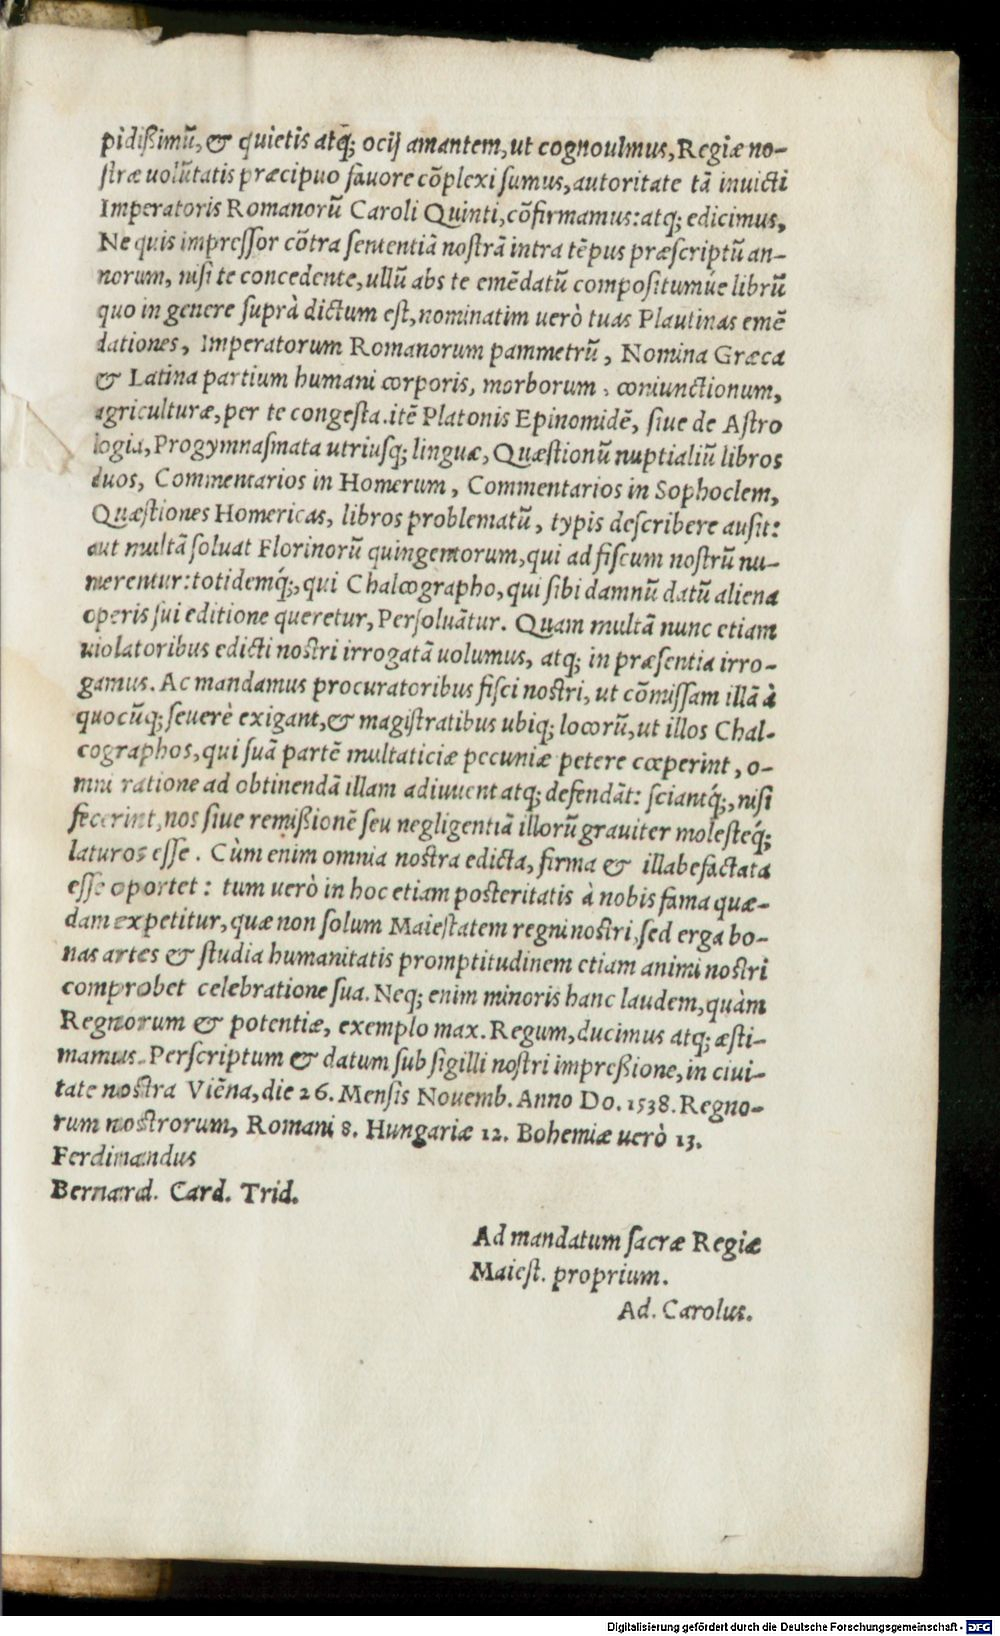 pidißimũ, & quietis atq; ocij amantem, ut cognouimus, Regiæ no-
stræ uolũtatis præcipuo fauore cõplexi sumus, autoritate tã inuicti
Imperatoris Romanorũ Caroli Quinti, cõfirmamus: atq; edicimus,
Ne quis impressor cõtra sententiã nostrã intra tẽpus præscriptũ an-
norum, nisi te concedente, ullũ abs te emẽdatũ compositumúe librũ
quo in genere suprà dictum est, nominatim uerò tuas Plautinas emẽ
dationes, Imperatorum Romanorum pammetrũ, Nomina Græca
& Latina partium humani corporis, morborum, coniunctionum,
agriculturæ, per te congesta. itẽ Platonis Epinomidẽ, siue de Astro
logia, Progymnasmata utriusq; linguæ, Quæstionũ nuptialiũ libros
duos, Commentarios in Homerum, Commentarios in Sophoclem,
Quæstiones Homericas, libros problematũ, typis describere ausit:
aut multã soluat Florinorũ quingentorum, qui ad fiscum nostrũ nu-
merentur: totidemq́;, qui Chalcographo, qui sibi damnũ datũ aliena
operis sui editione queretur, Persoluãtur. Quam multã nunc etiam
uiolatoribus edicti nostri irrogatã uolumus, atq; in præsentia irro-
gamus. Ac mandamus procuratoribus fisci nostri, ut cõmissam illã à
quocũq; seuerè exigant, & magistratibus ubiq; locorũ, ut illos Chal-
cographos, qui suã partẽ multaticiæ pecuniæ petere cœperint, o-
mni ratione ad obtinendã illam adiuuent atq; defendãt: sciantq́;, nisi
fecerint, nos siue remißionẽ seu negligentiã illorũ grauiter molesteq́;
laturos esse. Cùm enim omnia nostra edicta, firma & illabefactata
esse oportet: tum uerò in hoc etiam posteritatis à nobis fama quæ-
dam expetitur, quæ non solum Maiestatem regni nostri, sed erga bo-
nas artes & studia humanitatis promptitudinem etiam animi nostri
comprobet celebratione sua. Neq; enim minoris hanc laudem, quàm
Regnorum & potentiæ, exemplo max. Regum, ducimus atq; æsti-
mamus. Perscriptum & datum sub sigilli nostri impreßione, in ciui-
tate nostra Viẽna, die 26. Mensis Nouemb. Anno Do. 1538. Regno-
rum nostrorum, Romani 8. Hungariæ 12. Bohemiæ uerò 13.
Ferdinandus
Bernard. Card. Trid.
Ad mandatum sacræ Regiæ
Maiest. proprium.
Ad. Carolus.
Digitalisierung gefördert durch die Deutsche Forschungsgemeinschaft - DFG